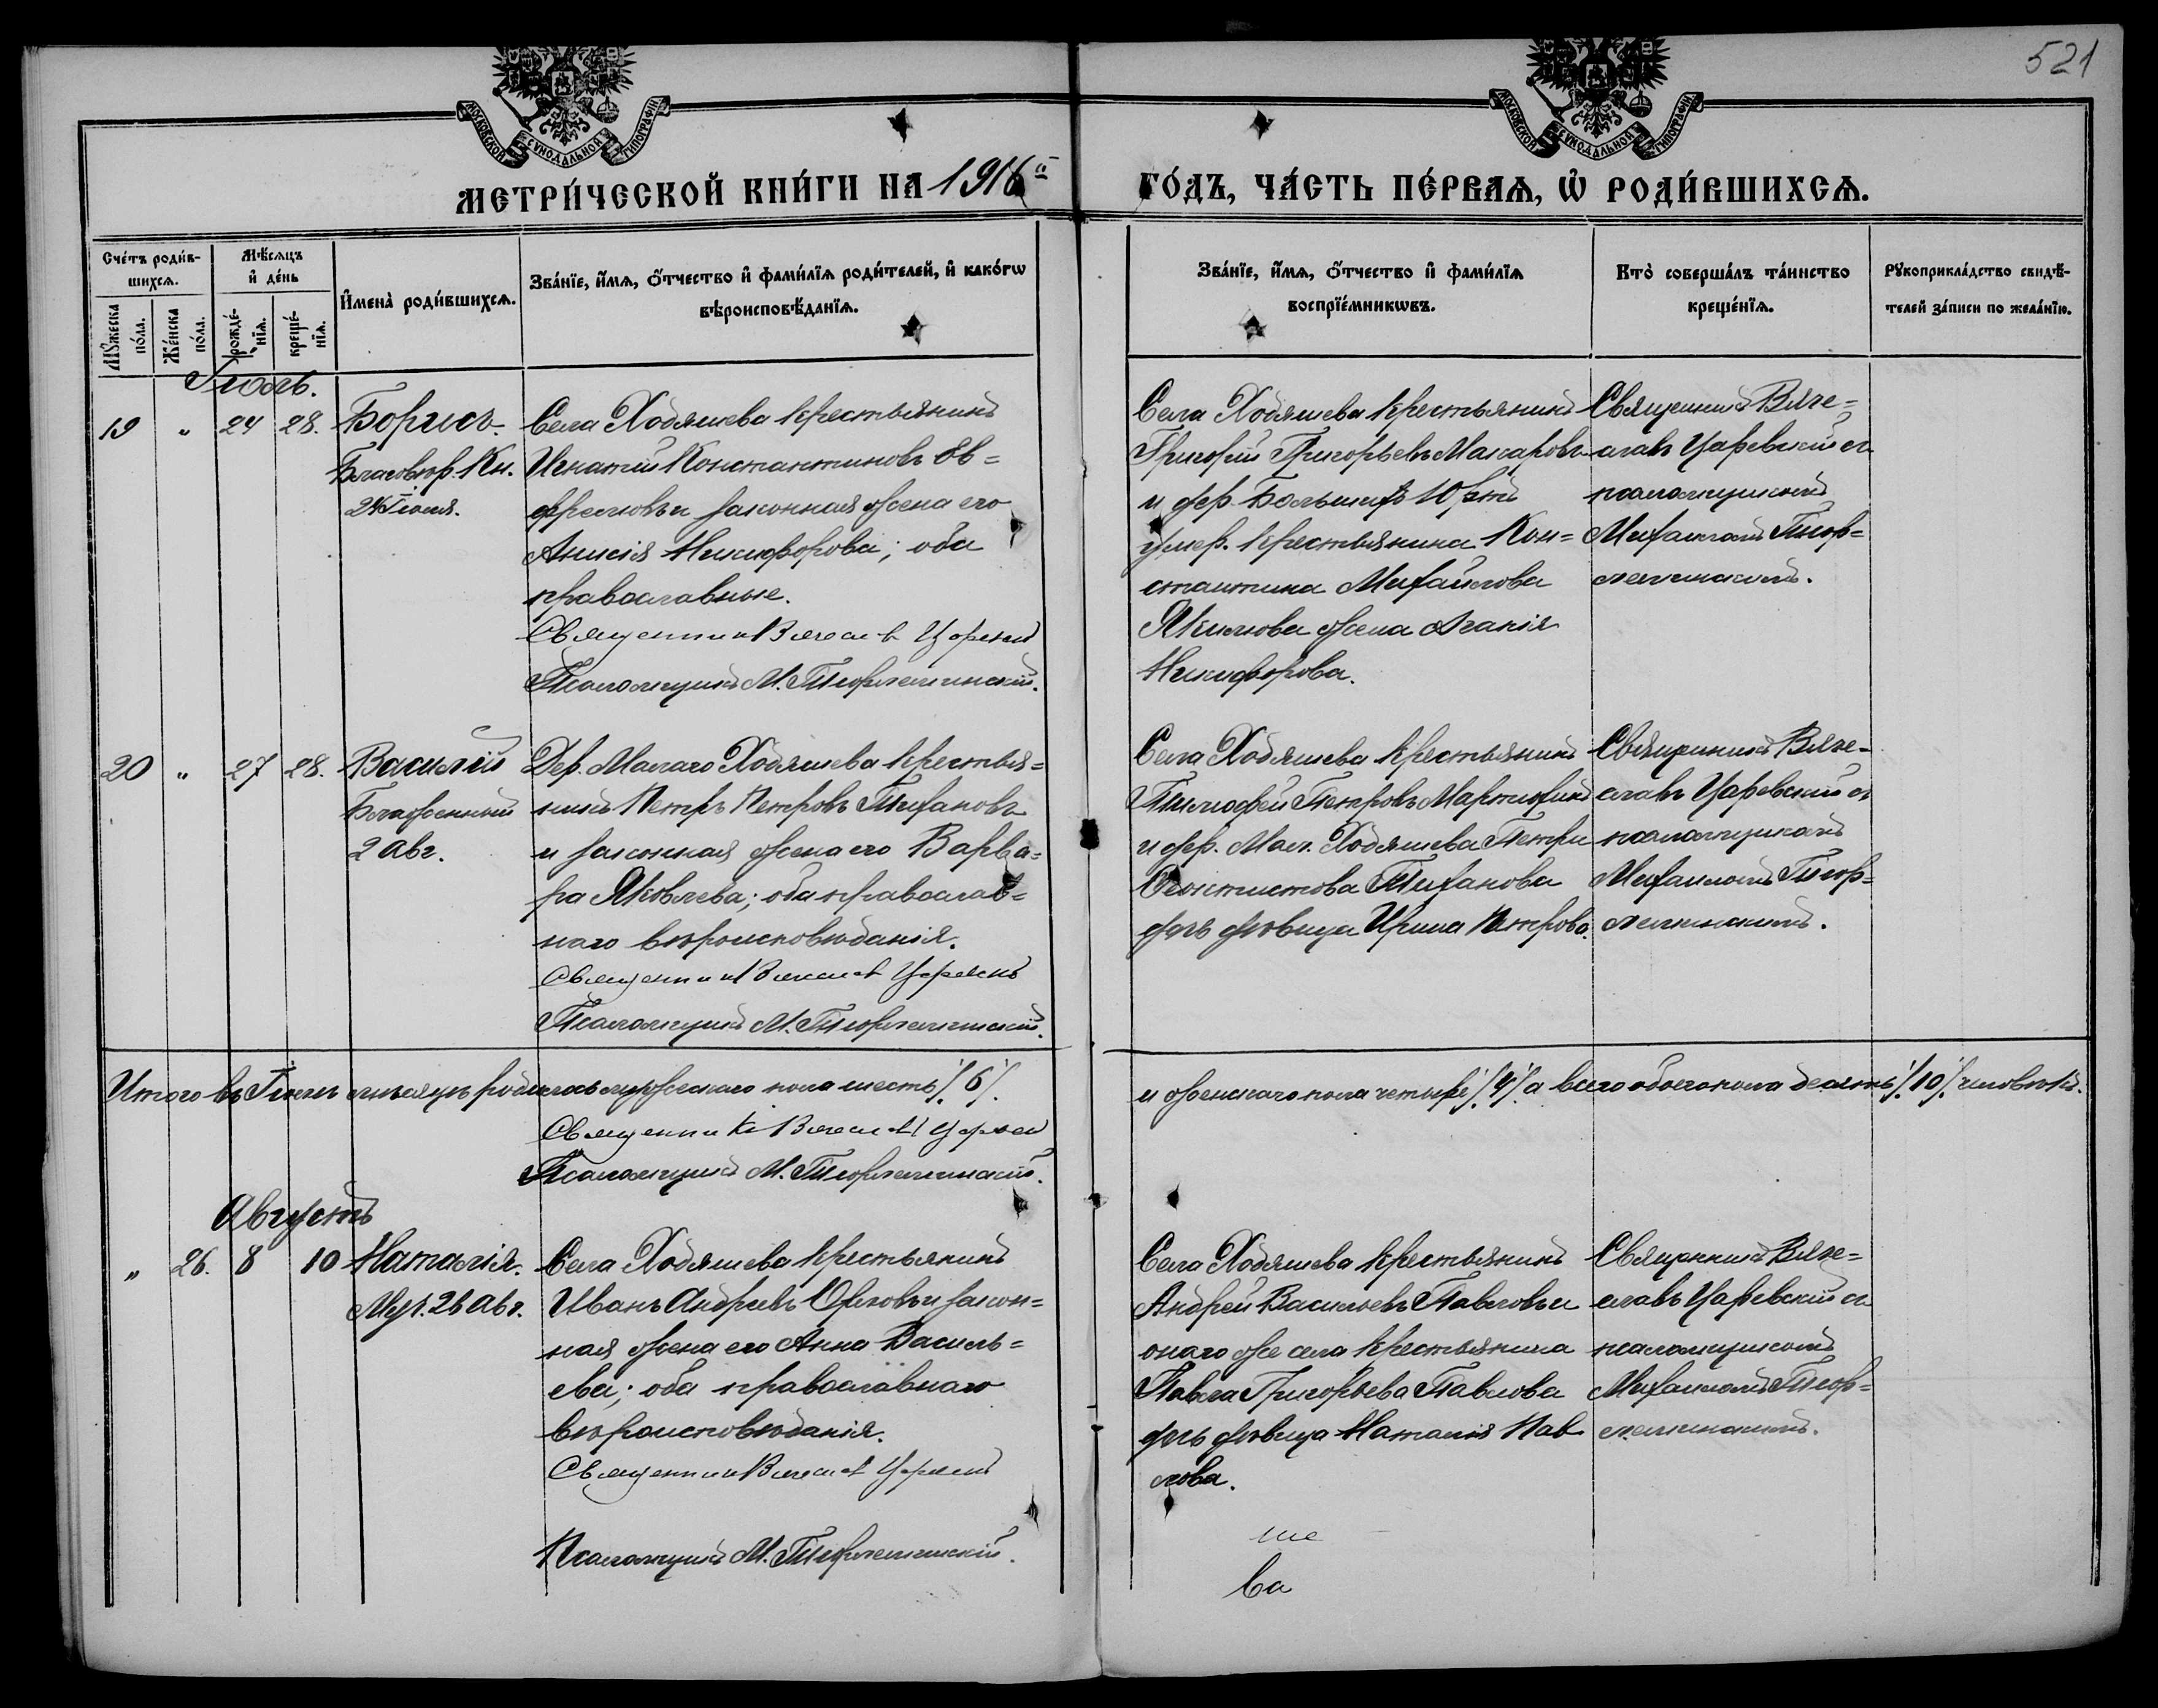 521
МОСКОВСКОЙ СѴНОДАЛЬНОЙ ТИПОГРАФІИ
МОСКОВСКОЙ СѴНОДАЛЬНОЙ ТИПОГРАФІИ
МЕТРИ́ЧЕСКОЙ КНИ́ГИ НА 1916й ГО́ДЪ, ЧА́СТЬ ПЕ́РВАѦ, Ѡ РОДИ́ВШИХСѦ.
Сче́тъ роди́в-
шихсѧ.
Мѣ́сѧцъ
и҆ де́нь
Мꙋ́жеска
по́ла.
Же́нска
по́ла.
рожде́-
нїѧ.
креще́-
нїѧ.
И҆мена̀ роди́вшихсѧ.
Зва́нїе, и҆́мѧ, ѻ҆́тчество и҆ фами́лїѧ роди́телей, и҆ како́гѡ
вѣроисповѣ́данїѧ.
Зва́нїе, и҆́мѧ, ѻ҆́тчество и҆ фами́лїѧ
воспрїе́мникѡвъ.
Кто̀ соверша́лъ та́инство
креще́нїѧ.
Рꙋкоприкла́дство свидѣ́-
телей за́писи по жела́нїю.
Іюль.
19 " 24 28. Борисъ.
Благовѣр. Кн.
24 Іюля.
Села Ходяшева крестьянинъ
Игнатій Константиновъ Ев=
фремовъ и законная жена его
Анисія Никифорова; оба
православные.
Священникъ Вячеслав Царевскій
Псаломщикъ М.
Села Ходяшева крестьянинъ
Григорій Григорьевъ Макаровъ
и дер. Большихъ
умер. крестьянина Кон=
стантина Михайлова
Якимова жена Агапія
Никифорова.
Священникъ Вяче=
славъ Царевскій съ
псаломщикомъ
Михаиломъ
20 " 27 28. Василій
Блаженный
2 Авг.
Дер. Малаго Ходяшева крестья=
нинъ Петръ Петровъ Тихановъ
и законная жена его Варва=
ра Яковлева; оба православ=
наго вѣроисповѣданія.
Священникъ Вячеслав Царевскій
Псаломщикъ М.
Села Ходяшева крестьянинъ
Тимофей Петровъ
и дер. Мал. Ходяшева Петра
Феоктистова Тиханова
дочь дѣвица Ирина Петрова.
Священникъ Вяче=
славъ Царевскій съ
псаломщикомъ
Михаиломъ
Итого въ Іюлѣ мѣсяцѣ родилось мужескаго пола шесть /6/. и женскаго пола четыре /4/ а всего обоего пола десять /10/ человѣкъ.
Священникъ Вячеслав Царевскій
Псаломщикъ М.
Августъ
" 26. 8 10 Наталія.
Муч. 26 Авг.
Села Ходяшева крестьянинъ
Иванъ Андреевъ и закон=
ная жена его Анна Василь=
ева; оба православнаго
вѣроисповѣданія.
Священникъ Вячеслав Царевскій
Псаломщикъ М.
Села Ходяшева крестьянинъ
Андрей Васильевъ Павловъ и
онаго же села крестьянина
Павла Григорьева Павлова
дочь дѣвица Наталія Пав
лова.
Священникъ Вяче=
славъ Царевскій съ
псаломщикомъ
Михаиломъ
ше
ва